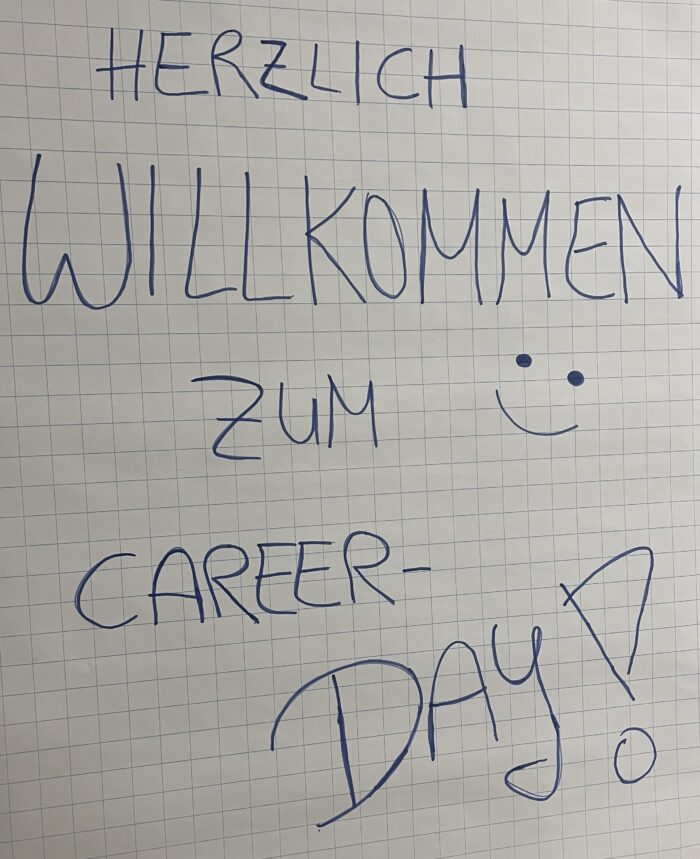 HERZLICH
WILLKOMMEN
ZUM
CAREER-
DAY!